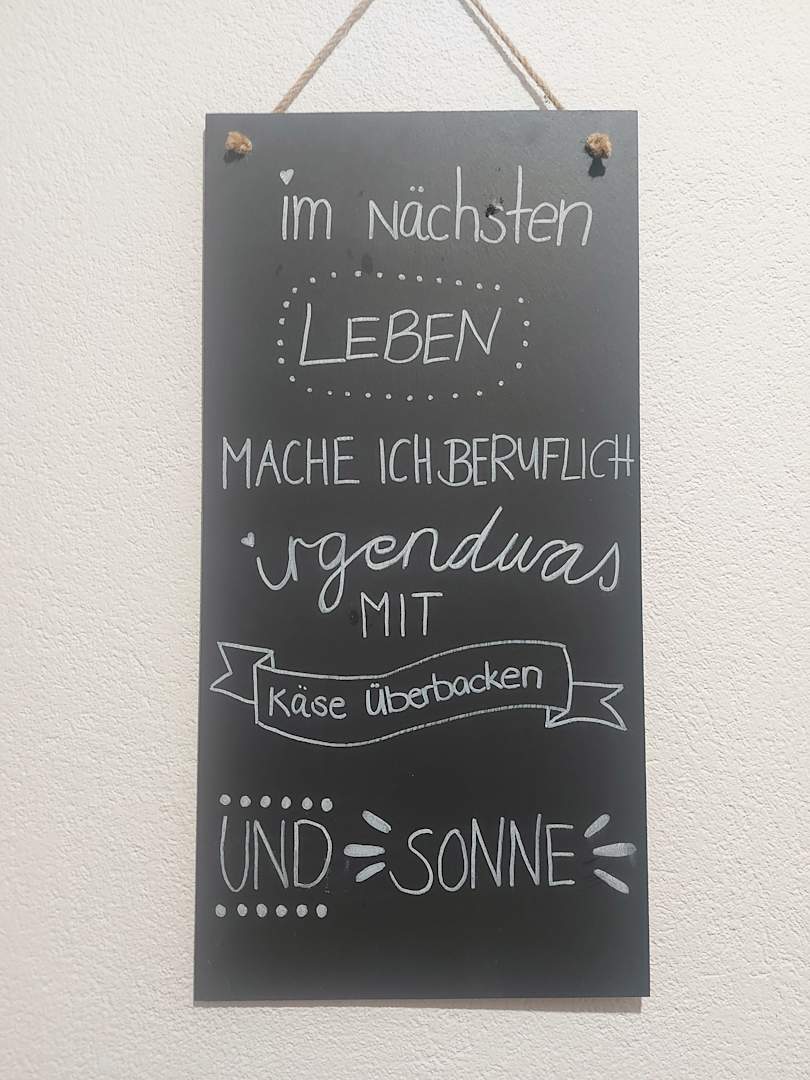 im Nächsten
LEBEN
MACHE ICH BERUFLICH
irgendwas
MIT
Käse Überbacken
UND SONNE